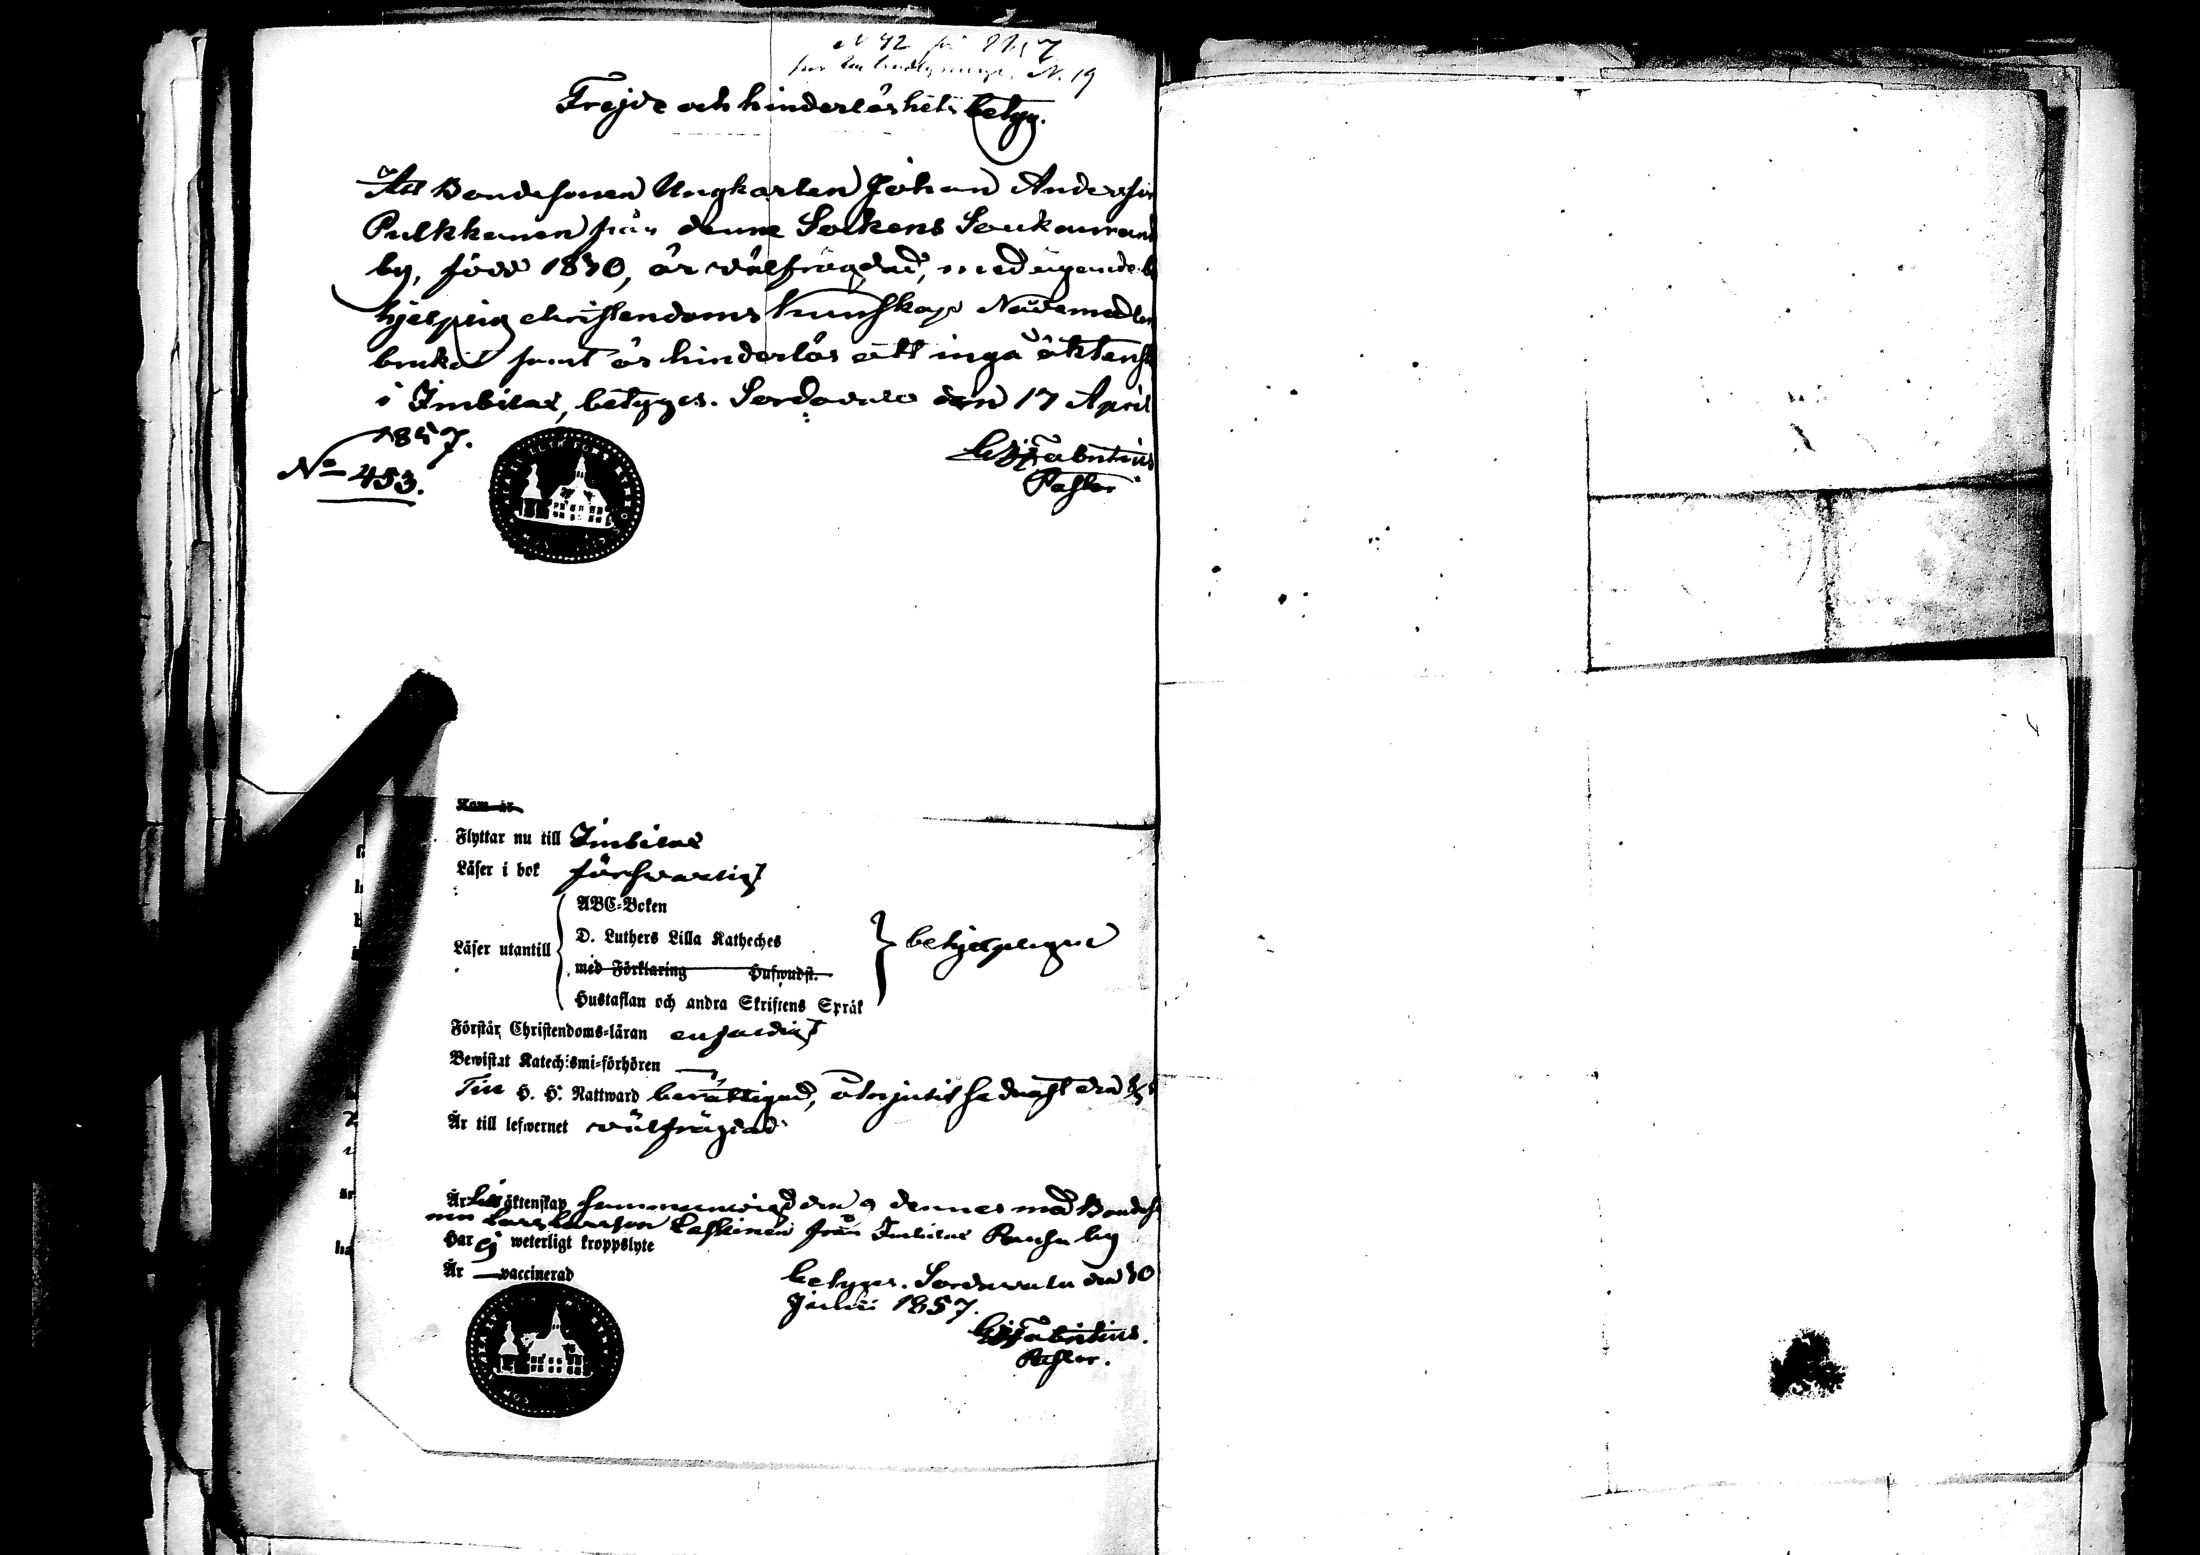 N 42 för 1857
N. 19
Frejde och hinderlöshets betyg.
Att Bondesonen Ungkarlen Johan Andersson
Pulkkanen från denne Sockens Soukanrand
by, född 1830, är välfrägdad, med ägande be
hjelplig christendoms kunskap Nådemedlen
brukat samt är hinderlös att ingå äktensk
i Imbilax, betyges. Sordavala den 17 April
1857.
No 453.
Fabritius
Pastor
Kom år
Flyttar nu till Imbilax
Läser i bok försvarligt
Läser utantill
ABC-Boken
D. Luthers Lilla Katheches
med Förklaring Hufwudst.
Hustaflan och andra Skriftens Språk
behjelpligen
Förstår Christendoms-läran enfaldigt
Bewistat Katechismi-förhören —
Till H. H. Nattward berättigad, åtnjutit sednast den
Är till lefwernet välfrägdad
Är till äktenskap den 9 dennes med Bondeso
nen Lars Larsson Laskinen från Imbilax by
Har ej weterligt kroppslyte
Är — vaccinerad
betyges. Sordavala den 30
Julii 1857.
Fabritius.
Pastor.